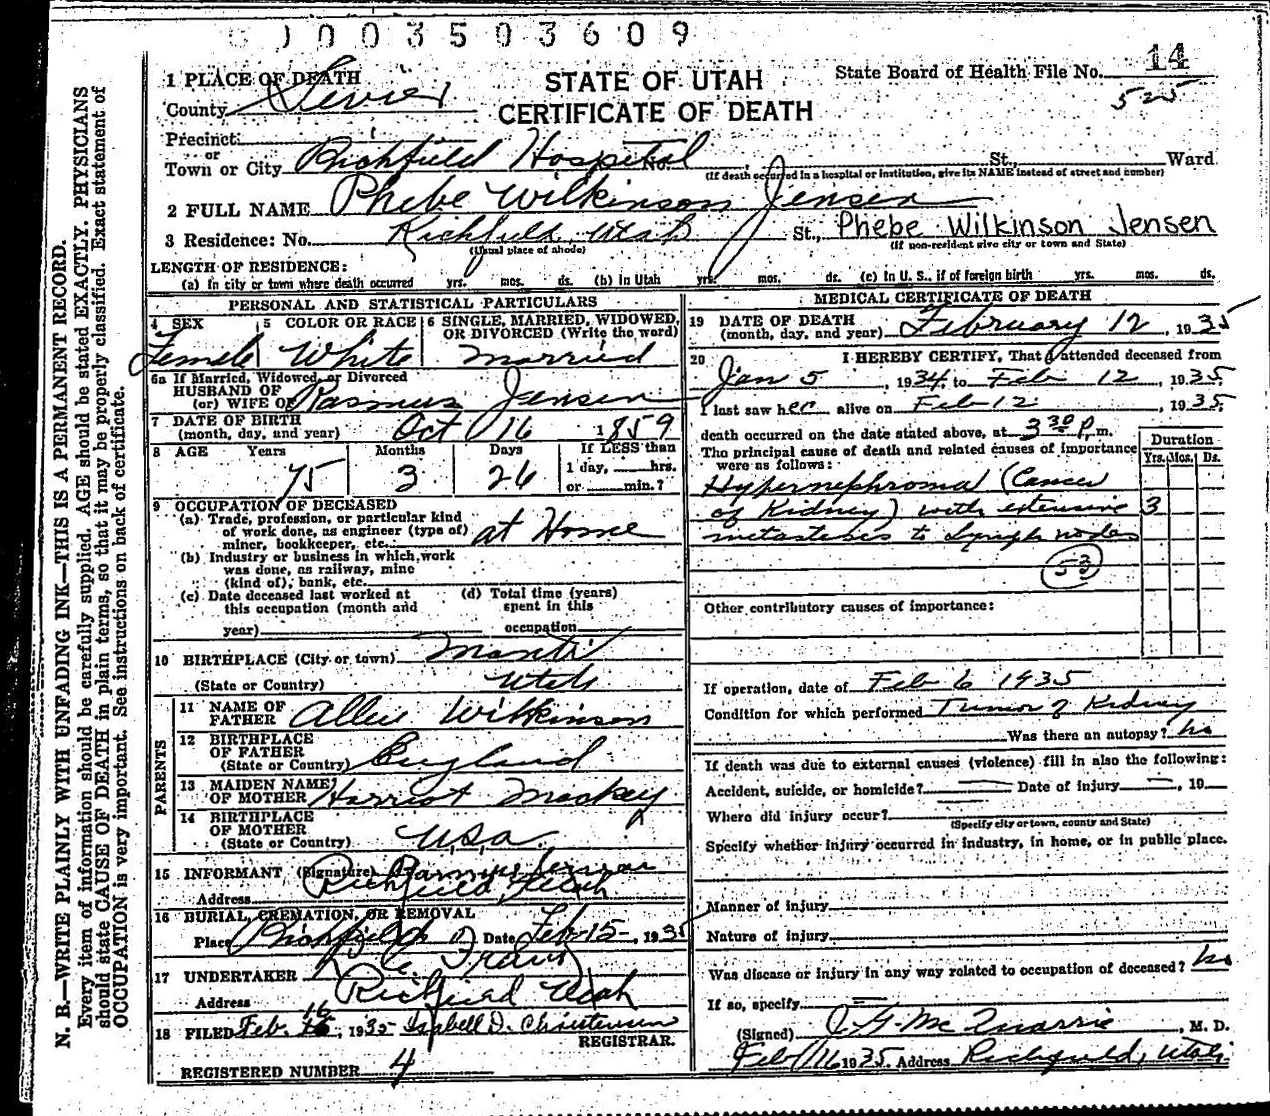 0 0 3 5 0 3 6 0 9
1 PLACE OF DEATH
STATE OF UTAH
CERTIFICATE OF DEATH
State Board of Health File No. 14
525
County Sevier
Precinct
or
Town or City Richfield Hospital No. St., Ward
(If death occurred in a hospital or institution, give its NAME instead of street and number)
2 FULL NAME Phebe Wilkinson Jensen
3 Residence: No. Richfield, Utah St., Phebe Wilkinson Jensen
(Usual place of abode) (If non-resident give city or town and State)
LENGTH OF RESIDENCE:
(a) In city or town where death occurred yrs. mos. ds. (b) In Utah yrs. mos. ds. (c) In U. S., if of foreign birth yrs. mos. ds.
PERSONAL AND STATISTICAL PARTICULARS
4 SEX Female
5 COLOR OR RACE White
6 SINGLE, MARRIED, WIDOWED, OR DIVORCED (Write the word) married
6a If Married, Widowed, or Divorced
HUSBAND OF
(or) WIFE OF Rasmus Jensen
7 DATE OF BIRTH
(month, day, and year) Oct 16 1859
8 AGE Years 75 Months 3 Days 26 If LESS than
1 day, hrs.
or min.?
9 OCCUPATION OF DECEASED
(a) Trade, profession, or particular kind
of work done, as engineer (type of)
miner, bookkeeper, etc. at Home
(b) Industry or business in which work
was done, as railway, mine
(kind of), bank, etc.
(c) Date deceased last worked at
this occupation (month and
year)
(d) Total time (years)
spent in this
occupation
10 BIRTHPLACE (City or town) Manti
(State or Country) Utah
PARENTS
11 NAME OF
FATHER Allen Wilkinson
12 BIRTHPLACE
OF FATHER
(State or Country) England
13 MAIDEN NAME
OF MOTHER Harriot Mackey
14 BIRTHPLACE
OF MOTHER
(State or Country) U.S.A.
15 INFORMANT (Signature) Rasmus Jensen
Address Richfield Utah
16 BURIAL, CREMATION, OR REMOVAL
Place Richfield Date Feb 15, 1935
17 UNDERTAKER
Address Richfield Utah
18 FILED Feb. 16, 1935 Isabell D. Christensen
REGISTRAR.
REGISTERED NUMBER 4
MEDICAL CERTIFICATE OF DEATH
19 DATE OF DEATH
(month, day, and year) February 12, 1935
20 I HEREBY CERTIFY, That I attended deceased from
Jan 5, 1934, to Feb 12, 1935
I last saw her alive on Feb 12, 1935,
death occurred on the date stated above, at 3 30 P.m.
The principal cause of death and related causes of importance
were as follows:
Duration
Yrs. Mos. Ds.
Hypernephroma (Cancer
of Kidney) with extensive 3
metastasis to lymph nodes
53
Other contributory causes of importance:
If operation, date of Feb 6 1935
Condition for which performed Tumor of Kidney
Was there an autopsy? no
If death was due to external causes (violence) fill in also the following:
Accident, suicide, or homicide? Date of injury , 19
Where did injury occur?
(Specify city or town, county and State)
Specify whether injury occurred in industry, in home, or in public place.
Manner of injury
Nature of injury
Was disease or injury in any way related to occupation of deceased? no
If so, specify
(Signed) J G McQuarrie, M. D.
Feb 16 1935 Address Richfield, Utah
N. B.—WRITE PLAINLY WITH UNFADING INK—THIS IS A PERMANENT RECORD.
Every item of information should be carefully supplied. AGE should be stated EXACTLY. PHYSICIANS
should state CAUSE OF DEATH in plain terms, so that it may be properly classified. Exact statement of
OCCUPATION is very important. See instructions on back of certificate.